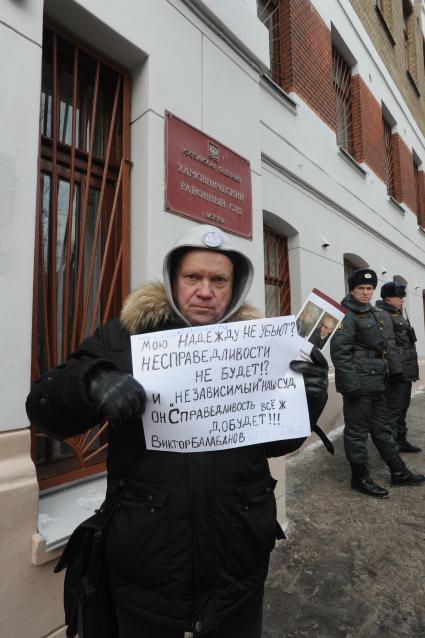 РОССИЙСКАЯ ФЕДЕРАЦИЯ
ХАМОВНИЧЕСКИЙ
РАЙОННЫЙ СУД
МОСКВЫ
МОЮ НАДЕЖДУ НЕ УБЬЮТ?
НЕСПРАВЕДЛИВОСТИ
НЕ БУДЕТ!?
И „НЕЗАВИСИМЫЙ" НАШ СУД
ОН СПРАВЕДЛИВОСТЬ ВСЁ Ж
ДОБУДЕТ!!!
ВИКТОР БАЛАБАНОВ